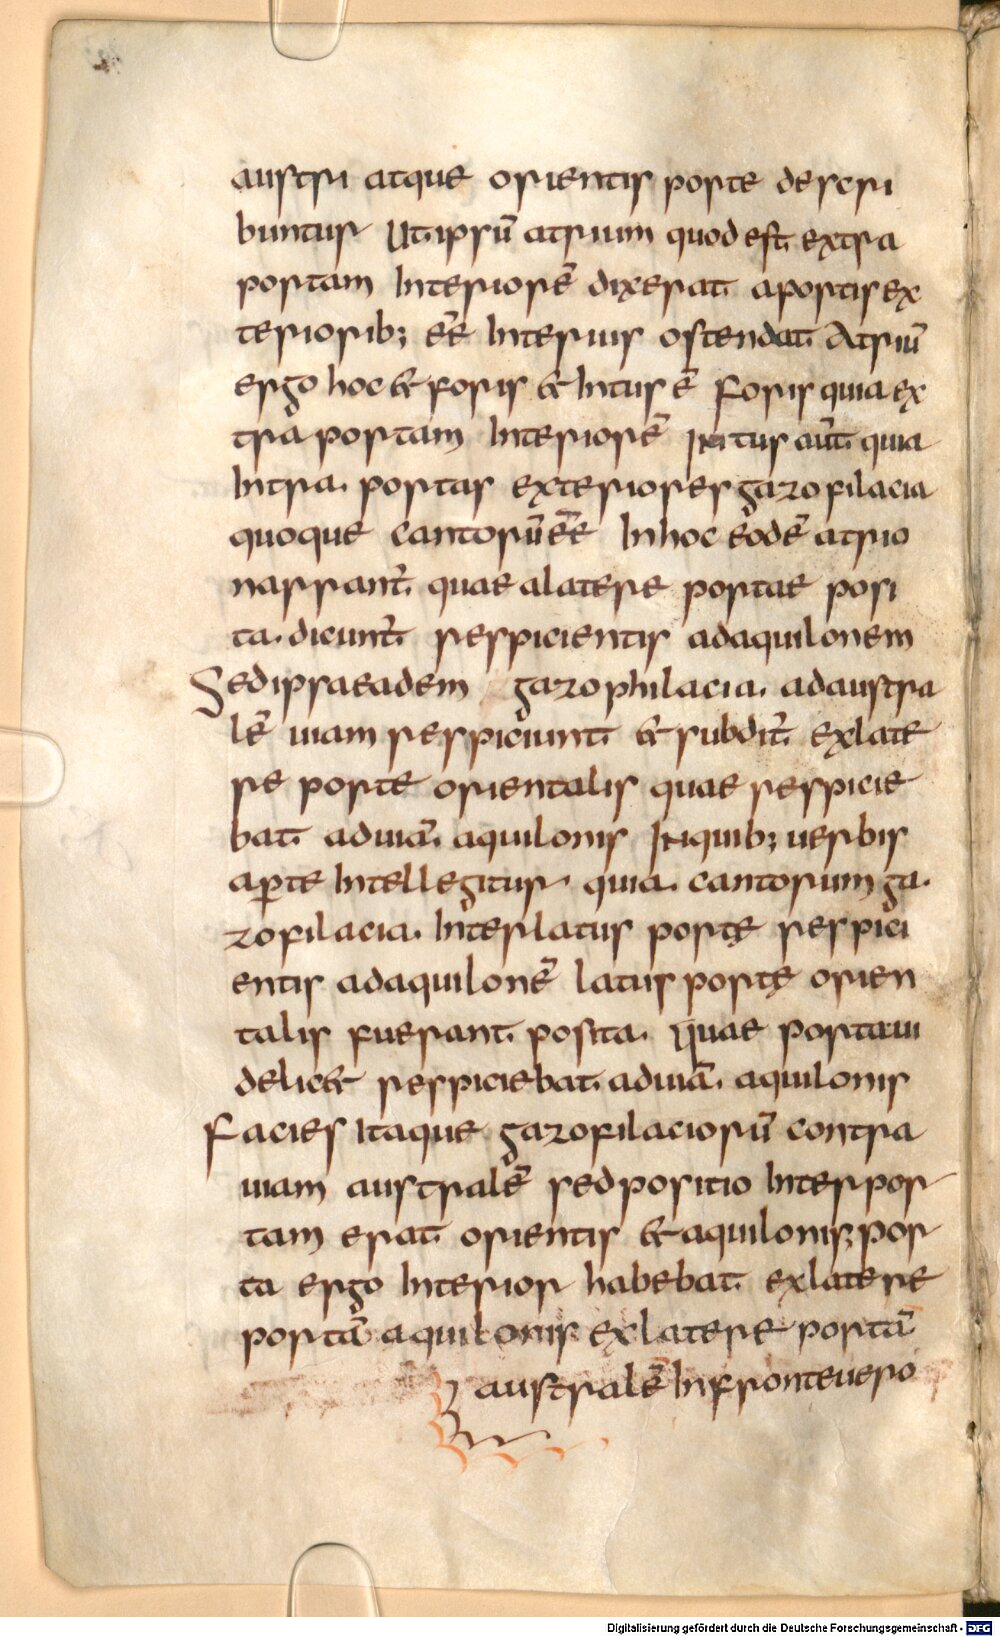 austri atque orientis porte descri
buntur Ut ipsū atrium quod est extra
portam interiorē dixerat a portis ex
teriorib; eē̄ interius ostendat Atriū
ergo hoc & foris & intus ē foris quia ex
tra portam interiorē intus aūt quia
intra portas exteriores gazofilacia
quoque cantorū eē̄ in hoc eodē atrio
narrant̄ quae a latere portae posi
ta dicunt̄ respicientis ad aquilonem
Sed ipsa eadem gazophilacia ad austra
lē uiam respiciunt & subdit̄ ex late
re porte orientalis quae respicie
bat ad uiā aquilonis In quib; uerbis
aꝑte intellegitur quia cantorum ga
zofilacia inter latus portę respici
entis ad aquilonē latus portę orien
talis fuerant posita Quae porta ui
delic& respiciebat ad uiā aquilonis
Facies itaque gazofilaciorū contra
uiam australē sed positio inter por
tam erat orientis & aquilonis; por
ta ergo interior habebat ex latere
portā aquilonis ex latere portā
australē in fronte uero
Digitalisierung gefördert durch die Deutsche Forschungsgemeinschaft - DFG